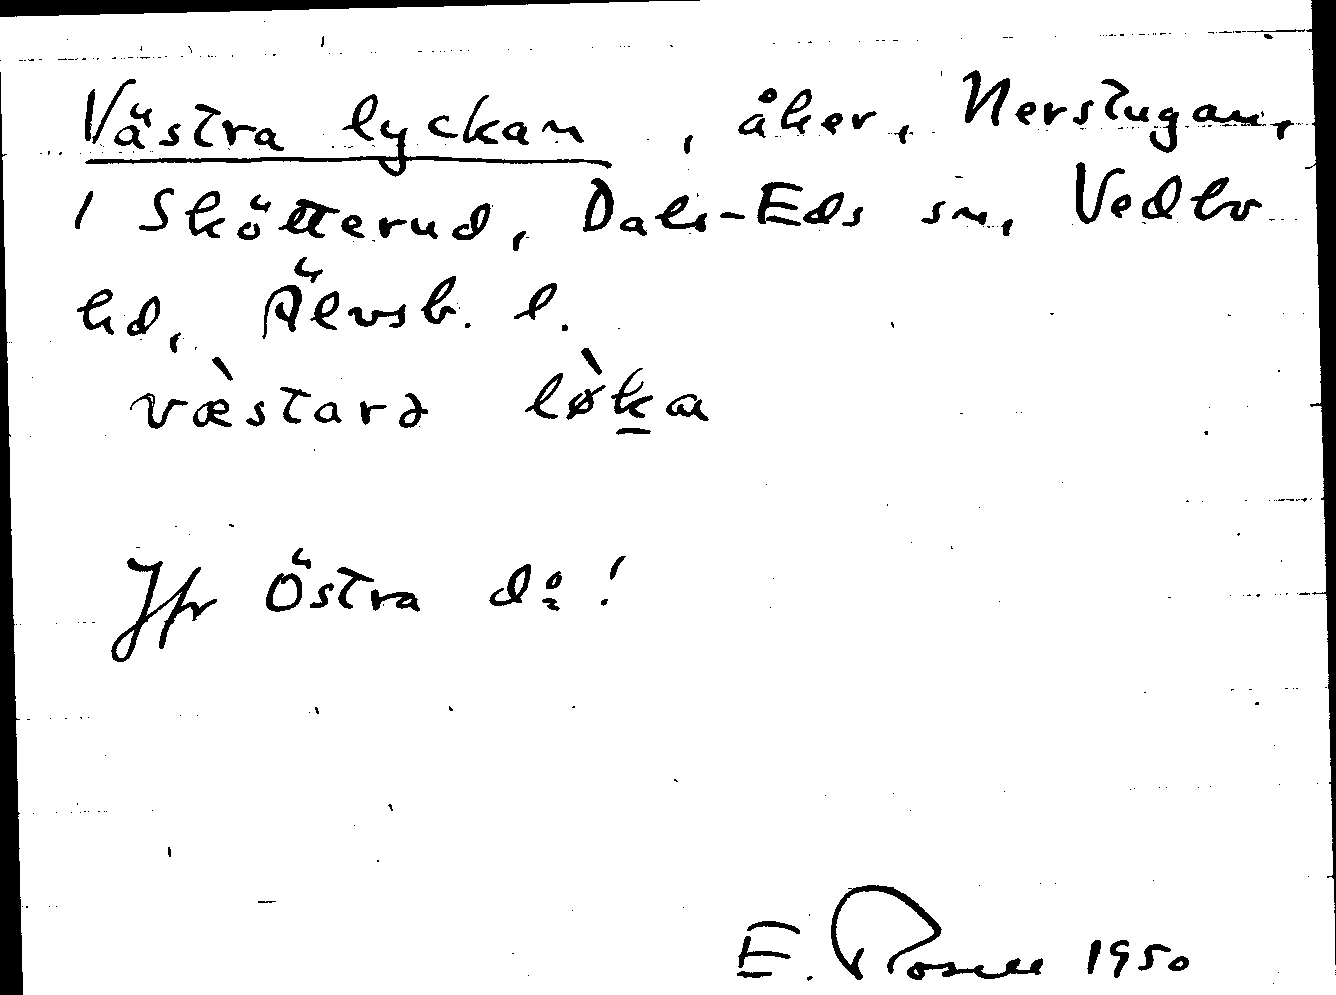 Västra lyckan, åker, Nerstugan,
1 Skötterud, Dals-Eds sn, Vedbo
hd, Älvsb. l.
væ̀starə lø̀k̲a
Jfr Östra d:o!
E. Rosell 1950